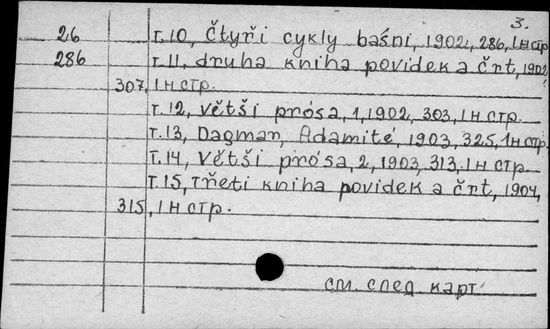 3.
26 т.10, Čtyři cykly bašni, 1902, 286, 1 н стр
286 т.11, druha kniha povidek a črt, 1902,
307, 1 н стр.
т.12, větši prósa, 1, 1902, 303, 1 н стр.
т.13, Dagmar, Adamité, 1903, 325, 1 н стр.
т.14, větši prósa, 2, 1903, 313, 1 н стр.
т.15, třeti kniha povidek a črt, 1904,
315, 1 н стр.
см. след карт